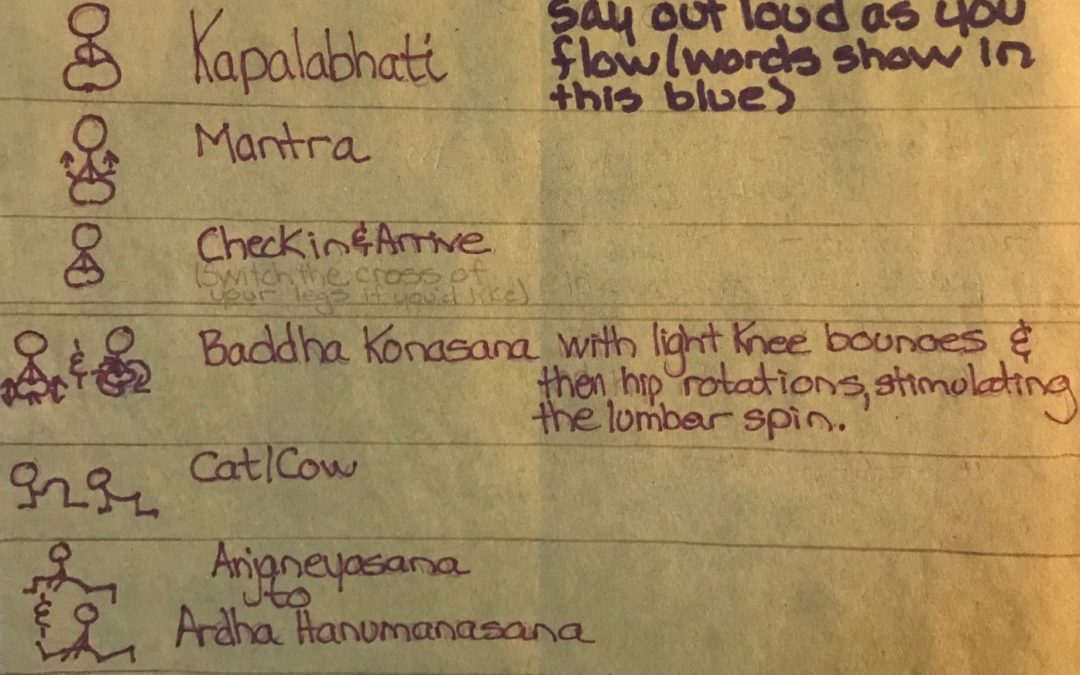 Kapalabhati
say out loud as you
flow (words show in
this blue)
Mantra
Check in & Arrive
(switch the cross of
your legs if you'd like)
in
& Baddha Konasana with light knee bounces &
then hip rotations, stimulating
the lumbar spin.
Cat/Cow
Anjaneyasana
&
to
Ardha Hanumanasana